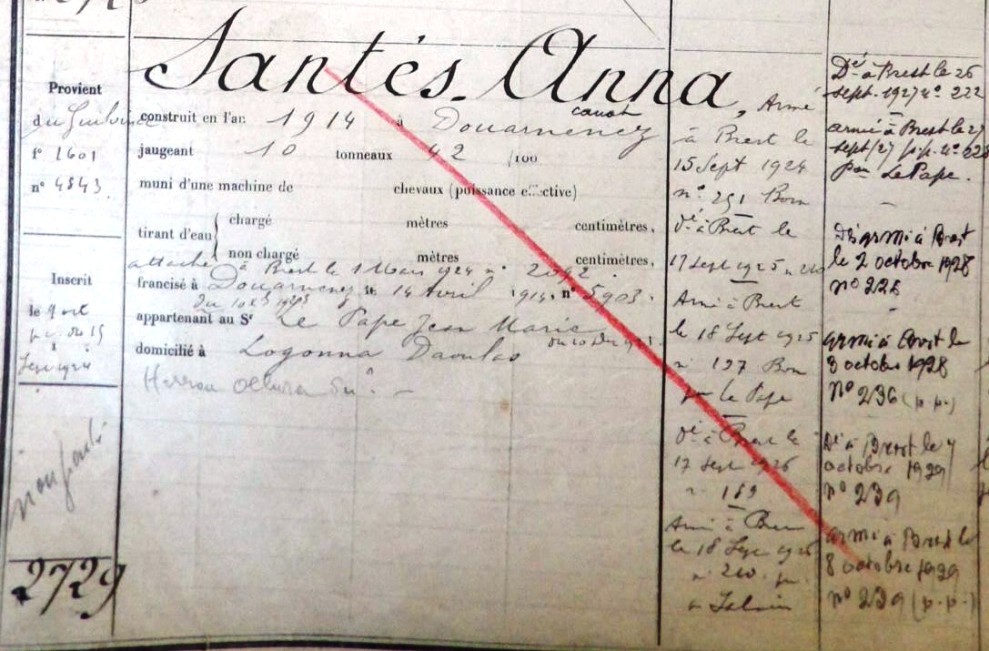 Provient
du Guilvinec
f° 1601
n° 4843
Inscrit
le 9 oct
Sept 1924
2729
Santés Anna
canot
construit en l'an 1914 à Douarnenez
jaugeant 10 tonneaux 42 /100
muni d'une machine de chevaux (puissance effective)
tirant d'eau { chargé mètres centimètres,
non chargé mètres centimètres,
attaché à Brest le 1 Mars 1924 n° 2092
francisé à Douarnenez le 14 Avril 1914, n° 5903.
appartenant au Sr Le Pape Jean Marie
domicilié à Logonna Daoulas
Armé
à Brest le
15 Sept 1924
n° 291 Bon
Dé à Brest le
17 Sept 1925 n
Armé à Brest
le 18 Sept 1925
n 197 Bon
par le Pape
Dé à Brest le
17 Sept 1926
n 189
Armé à Brest
le 18 Sept 1926
n 210 p.
Dé à Brest le 26
sept. 1927 n° 222
armé à Brest le 27
sept/27 p.p. n° 228
par Le Pape.
Désarmé à Brest
le 2 octobre 1928
n° 228
armé à Brest le
3 octobre 1928
n° 236 (p.p.)
Dé à Brest le 7
octobre 1929
n° 239
armé à Brest le
8 octobre 1929
n° 239 (p.p.)